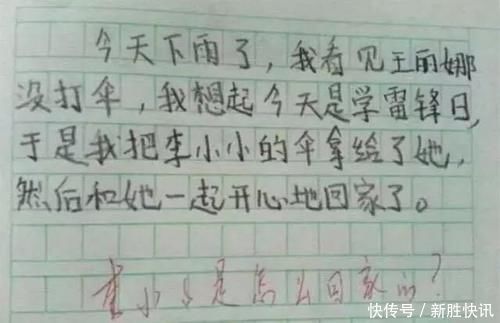 今天下雨了，我看见王丽娜
没打伞，我想起今天是学雷锋日，
于是我把李小小的伞拿给了她，
然后和她一起开心地回家了。
李小小是怎么回家的？
快传号／新胜快讯